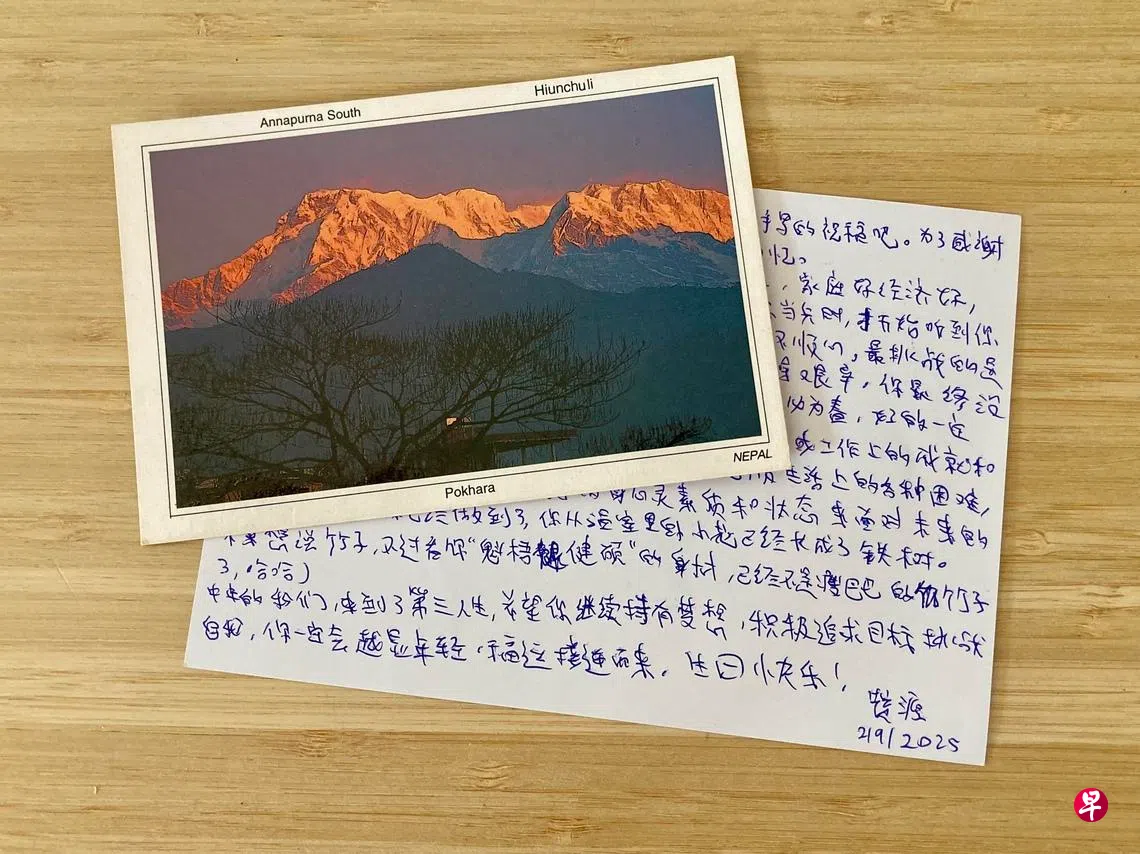 Annapurna South
Hiunchuli
NEPAL
Pokhara
的祝福吧。为了感谢
忆。
，家庭好经济好，
当兵时，才开始听到你
不顺心，最挑战的是
艰辛，你最终没
为舞，
或工作上的成就和
生活上的各种困难，
心灵素质和状态 来面对未来的
已经做到了，你从温室里的小花已经长成了铁树。
想说竹子，不过看你“魁梧健硕”的身材，已经不是瘦巴巴的竹子
了，哈哈）
的我们，来到了第三人生，希望你继续持有梦想，积极追求目标 挑战
自我，你一定会越显年轻，福运接连而来。生日快乐！
2/9/2025
早